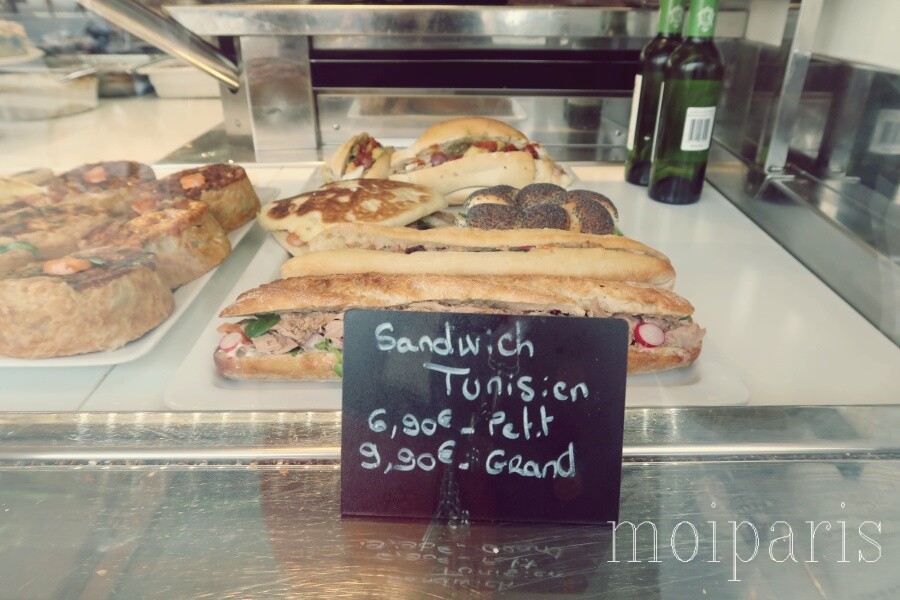 Sandwich
Tunisien
6,90€ - Petit
9,90€ - Grand
moiparis